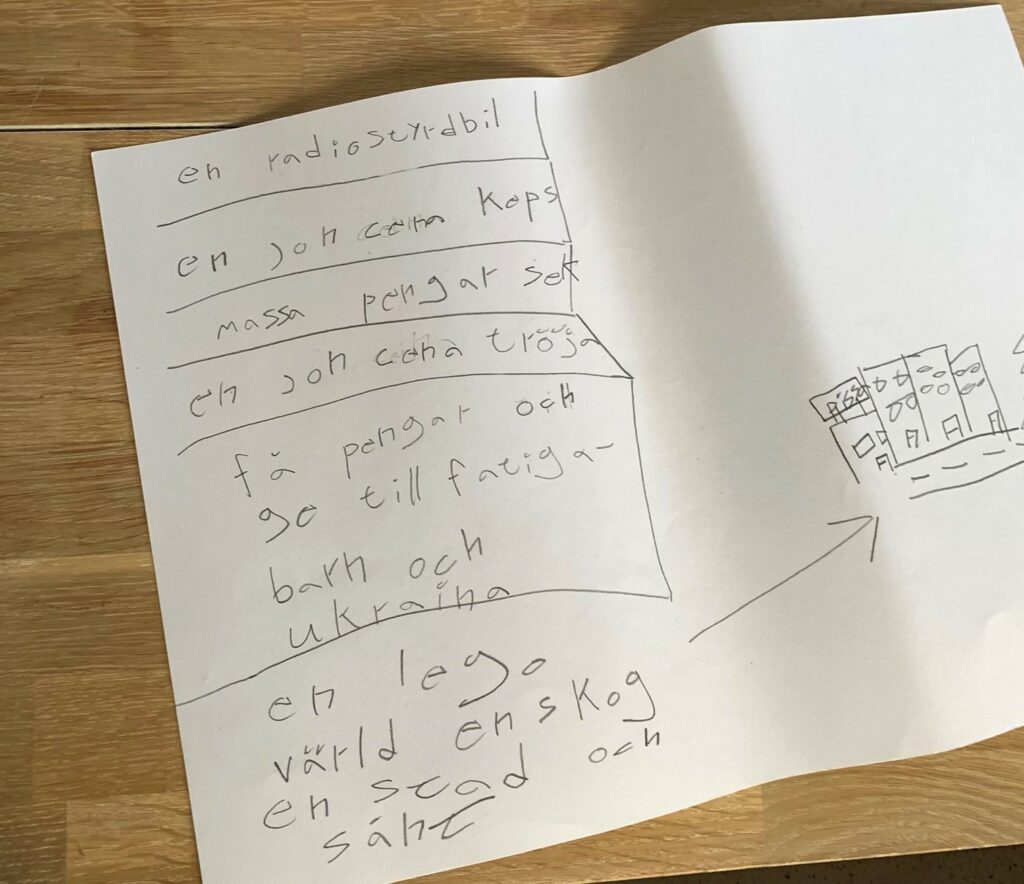 en radiostyrdbil
en jon cena keps
massa pengar sek
en jon cena tröja
få pengar och
ge till fatiga-
barn och
ukraina
en lego
värld en skog
en stad och
sånt